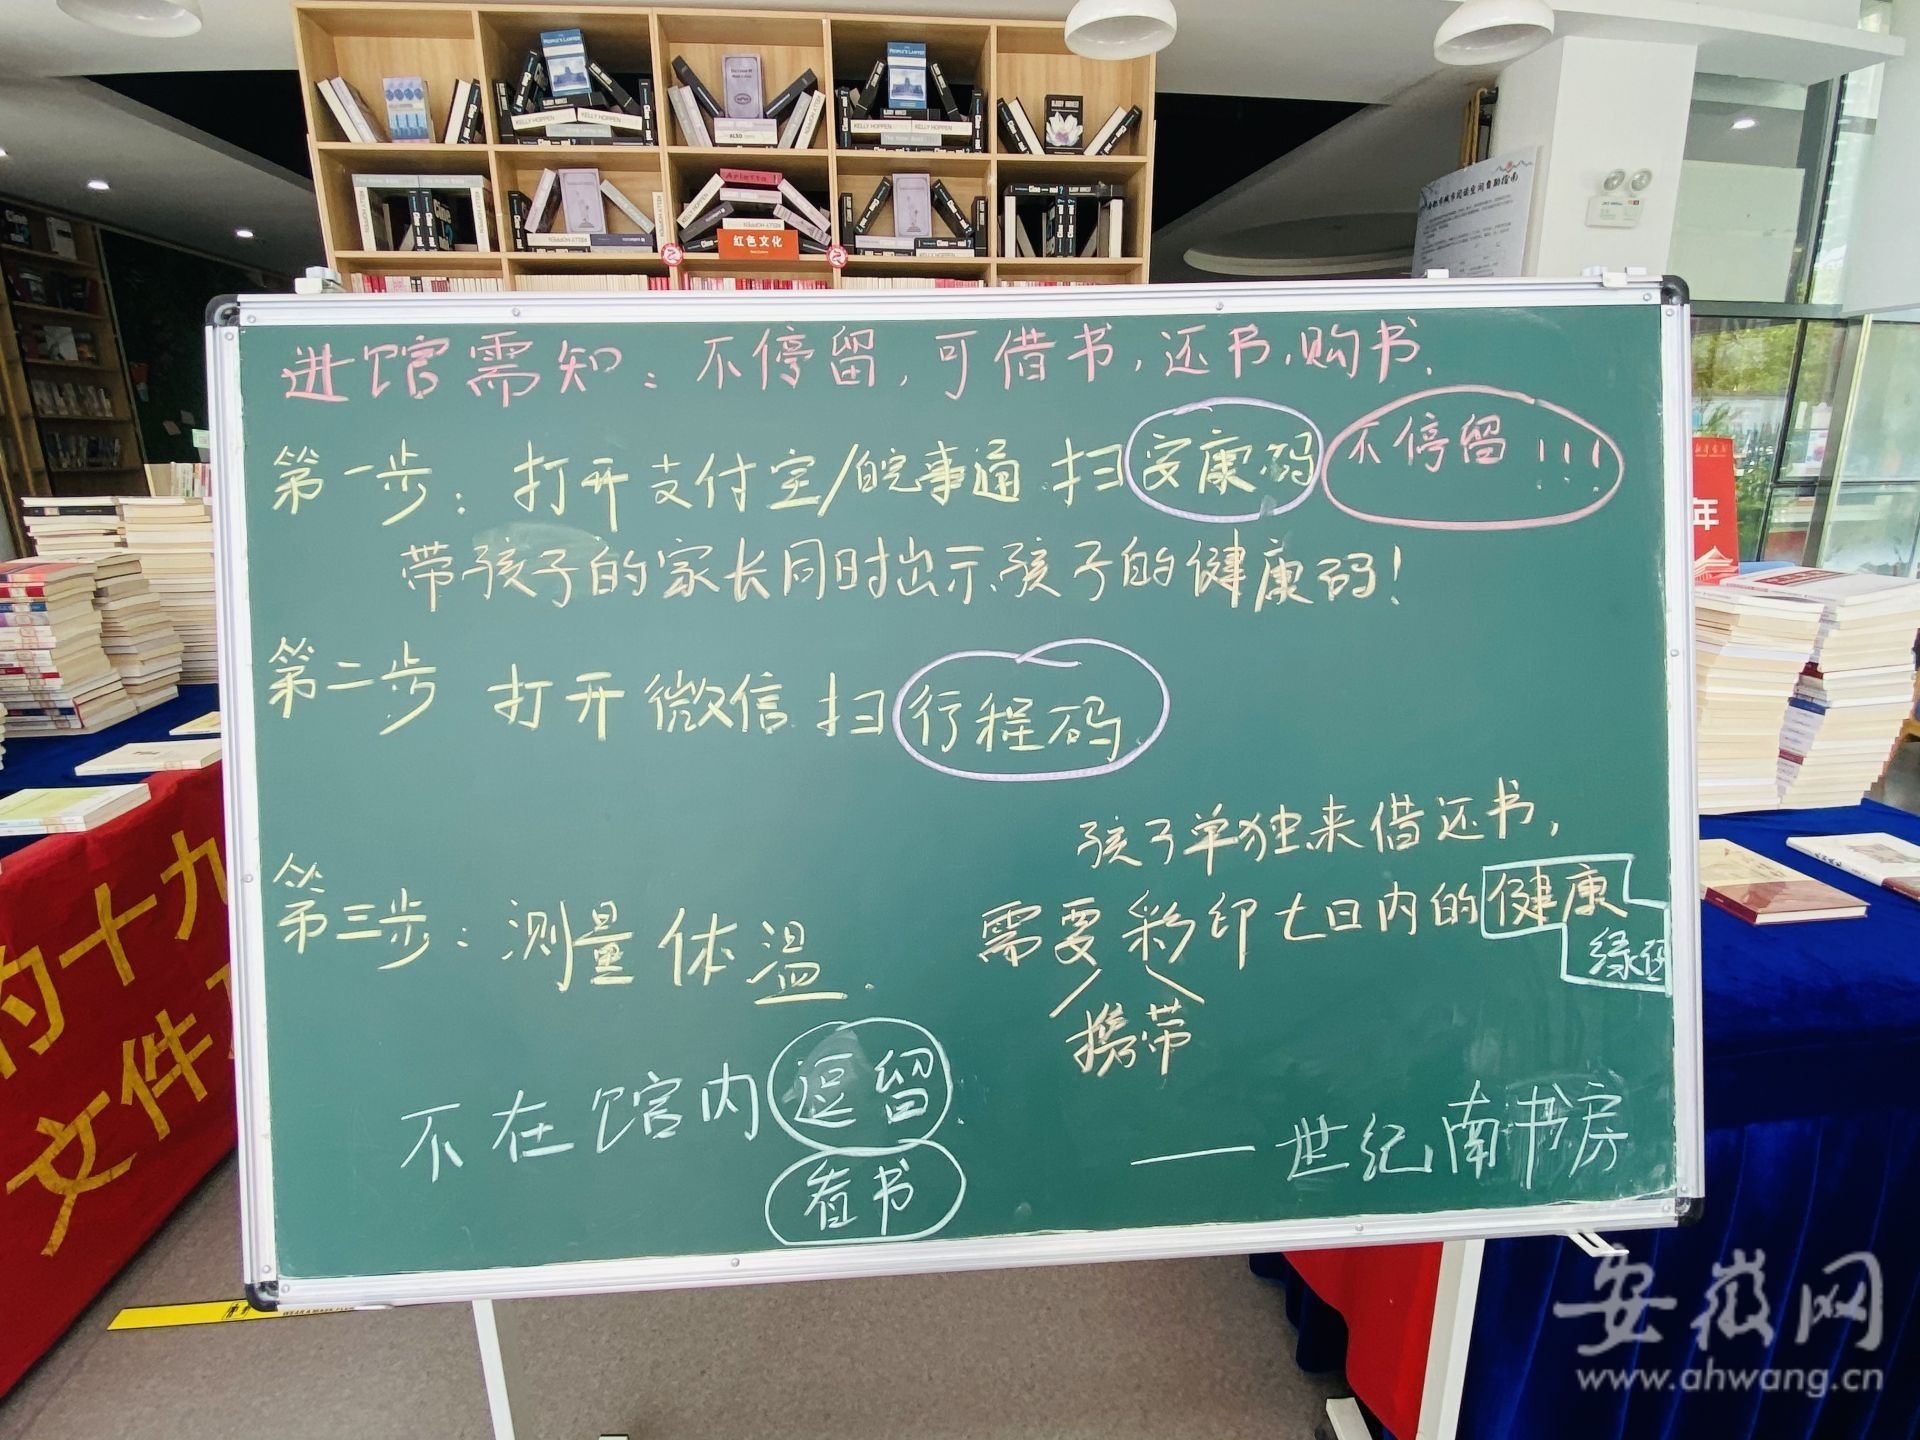 进馆需知：不停留，可借书，还书，购书.
第一步：打开支付宝/皖事通 扫安康码 不停留！！！
带孩子的家长同时出示孩子的健康码！
第二步 打开微信扫行程码
第三步：测量体温.
孩子单独来借还书，
需要彩印七日内的健康
绿码
携带
不在馆内逗留.
看书
——世纪南书房
红色文化
合肥市城市阅读空间自助指南
KELLY HOPPEN
Arietta
的十九
文件
年
安徽网
www.ahwang.cn